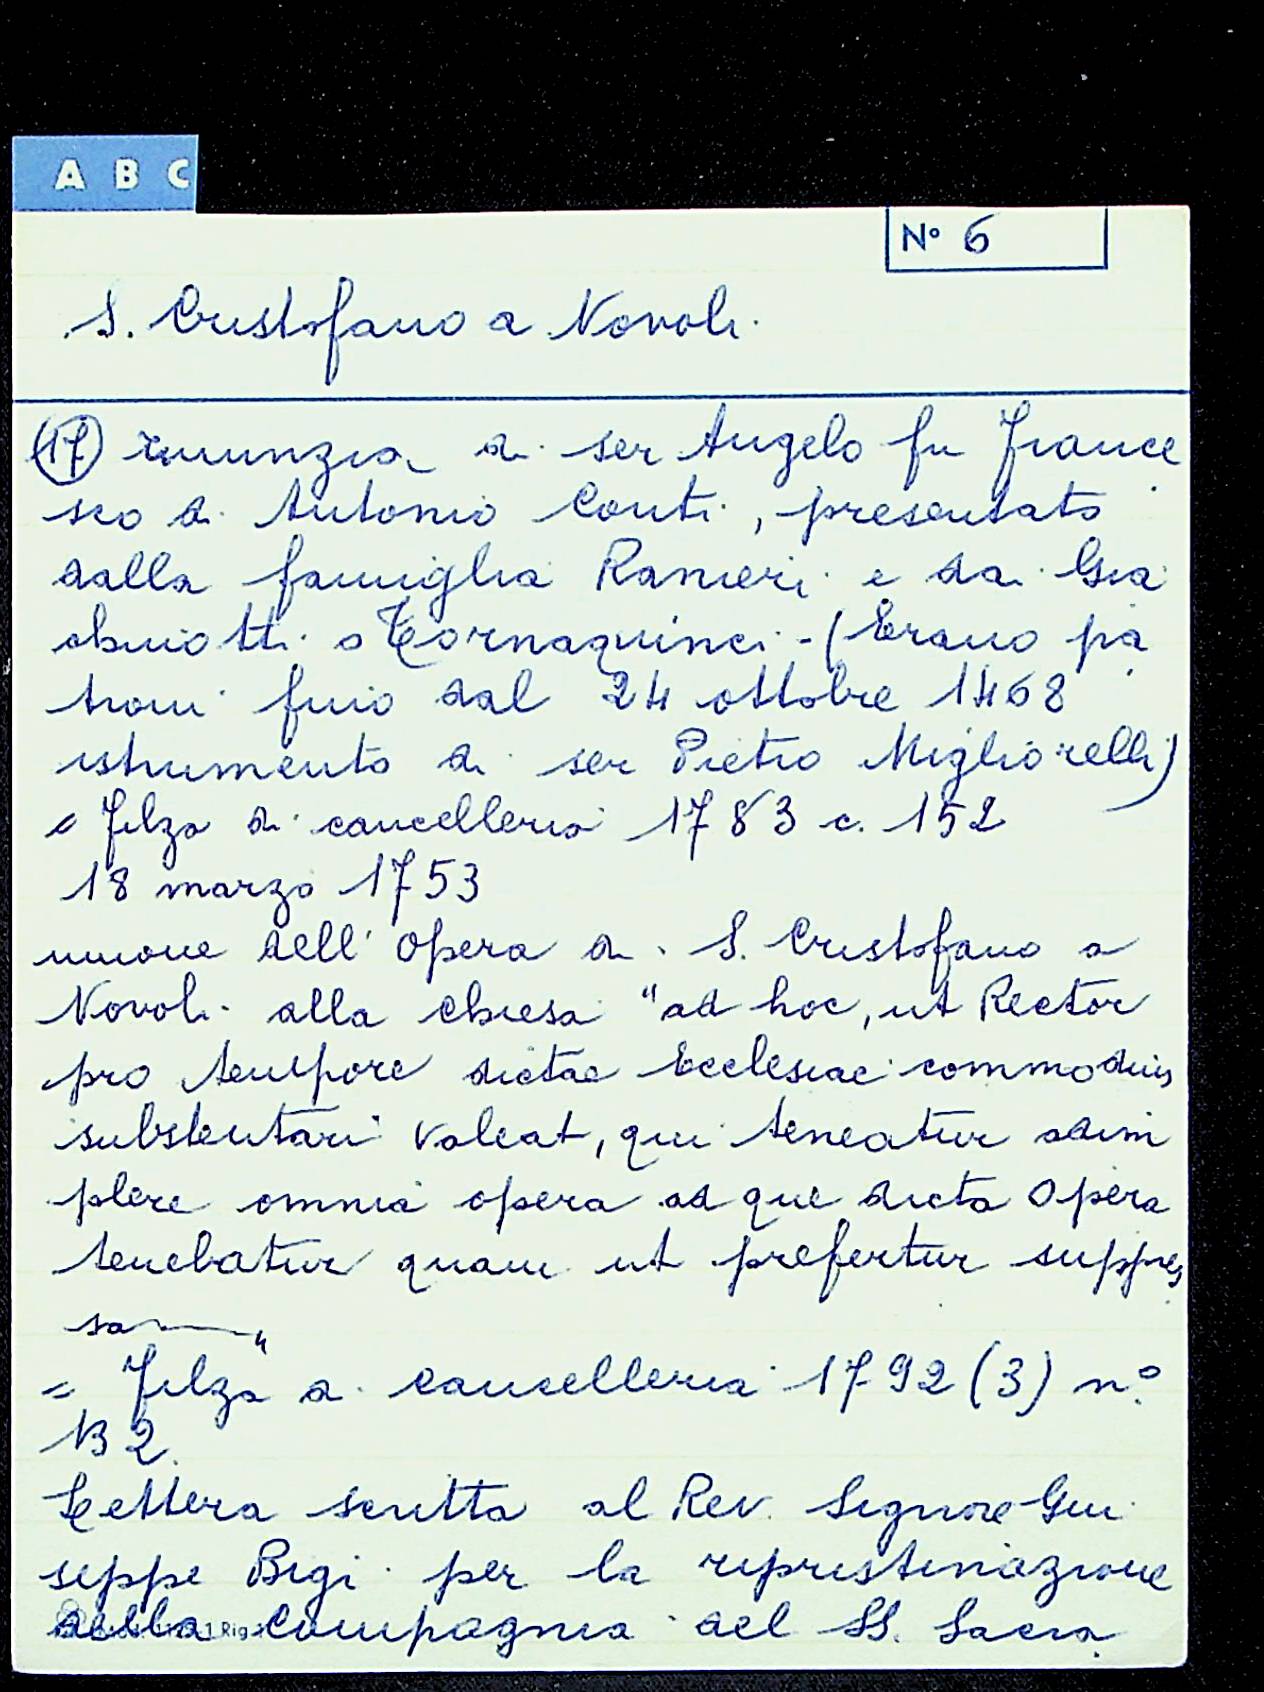 A B C
N° 6
S. Cristofano a Novoli.
(17) rinunzia di ser Angelo fu France
sco di Antonio Conti, presentato
dalla famiglia Ranieri e da Gia
chinotti o Tornaquinci - (Erano pa
troni fino dal 24 ottobre 1468
istrumento di ser Pietro Migliorelli)
= Filza di cancelleria 1783 c. 152
18 marzo 1753
unione dell' Opera di S. Cristofano a
Novoli alla chiesa "ad hoc, ut Rector
pro tempore dictae Ecclesiae commodius
substentari valeat, qui teneatur adim
plere omnia opera ad que dicta Opera
tenebatur quam ut prefertur suppres
sa"
= Filza di cancelleria 1792 (3) n°
132.
Lettera scritta al Rev. Signore Giu
seppe Bigi per la ripristinazione
della Compagnia del SS. Sacra